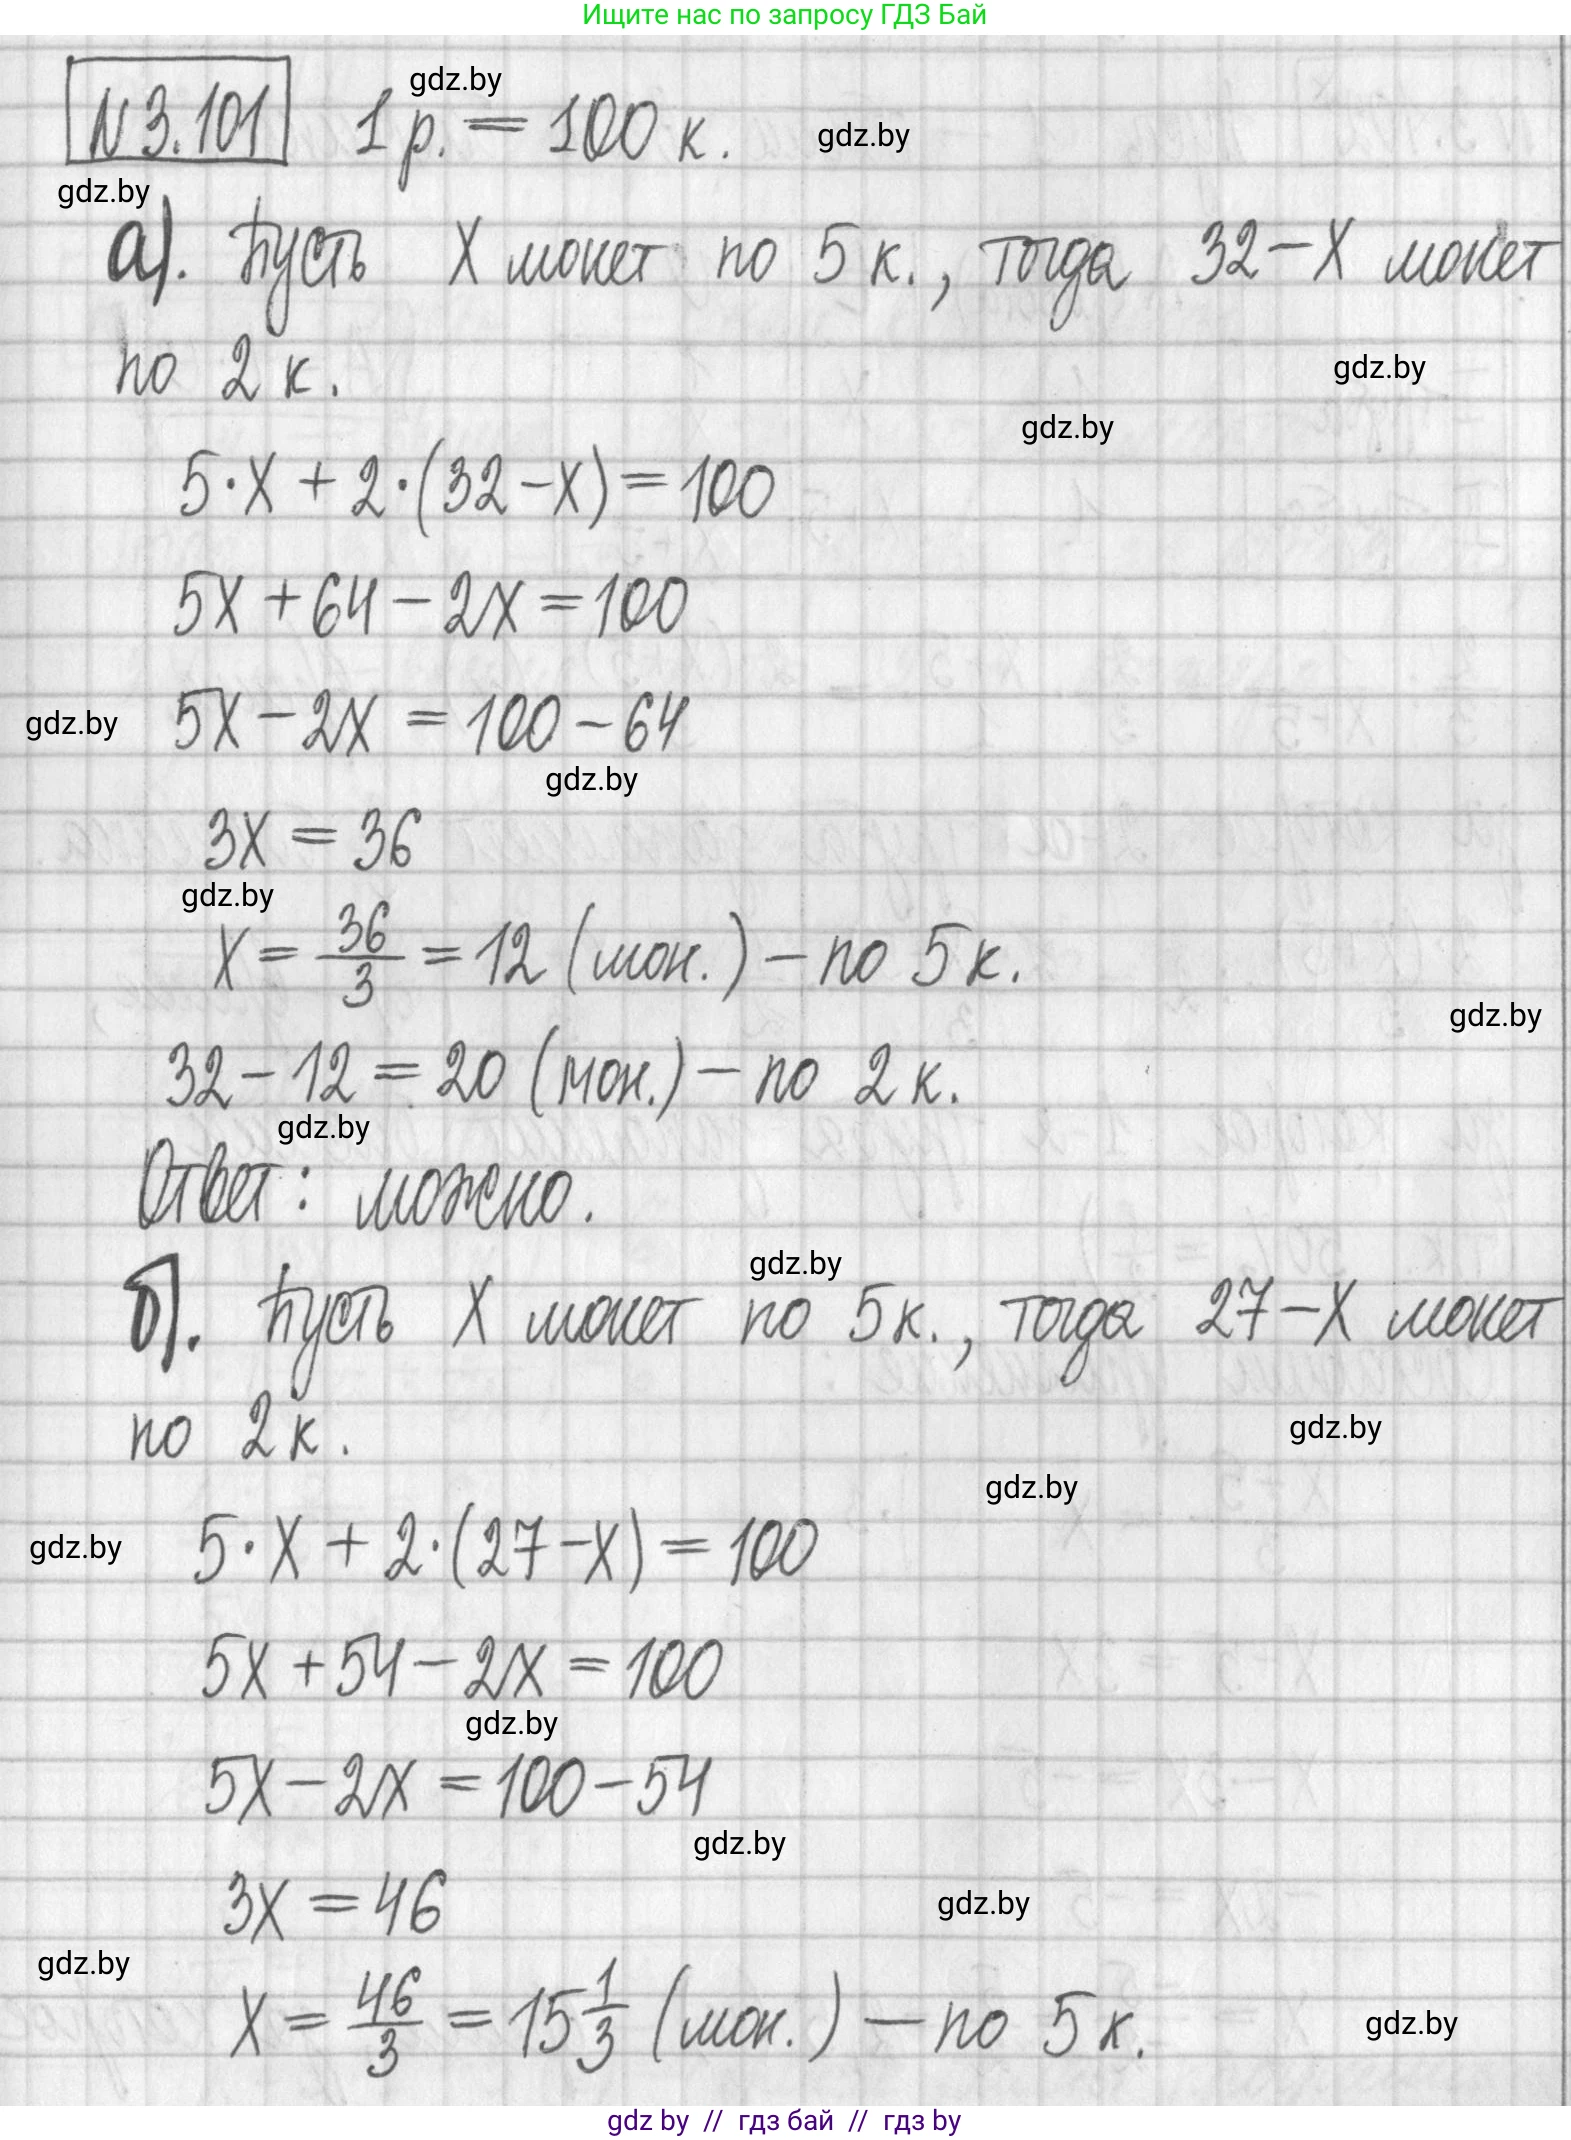 Ищите нас по запросу ГДЗ Бай
gdz.by
N 3.101 1 р. = 100 к.
gdz.by
gdz.by
а). Пусть X монет по 5 к., тогда 32 – X монет
по 2 к.
gdz.by
gdz.by
5·X + 2·(32 – X) = 100
5X + 64 – 2X = 100
gdz.by 5X – 2X = 100 – 64
gdz.by
3X = 36
gdz.by
X = 36/3 = 12 (мон.) – по 5 к.
gdz.by
32 – 12 = 20 (мон.) – по 2 к.
gdz.by
Ответ: можно.
gdz.by
б). Пусть X монет по 5 к., тогда 27 – X монет
по 2 к.
gdz.by
gdz.by
gdz.by 5·X + 2·(27 – X) = 100
5X + 54 – 2X = 100
gdz.by
5X – 2X = 100 – 54
gdz.by
3X = 46
gdz.by
gdz.by
X = 46/3 = 15 1/3 (мон.) – по 5 к.
gdz.by
gdz by // гдз бай // гдз by